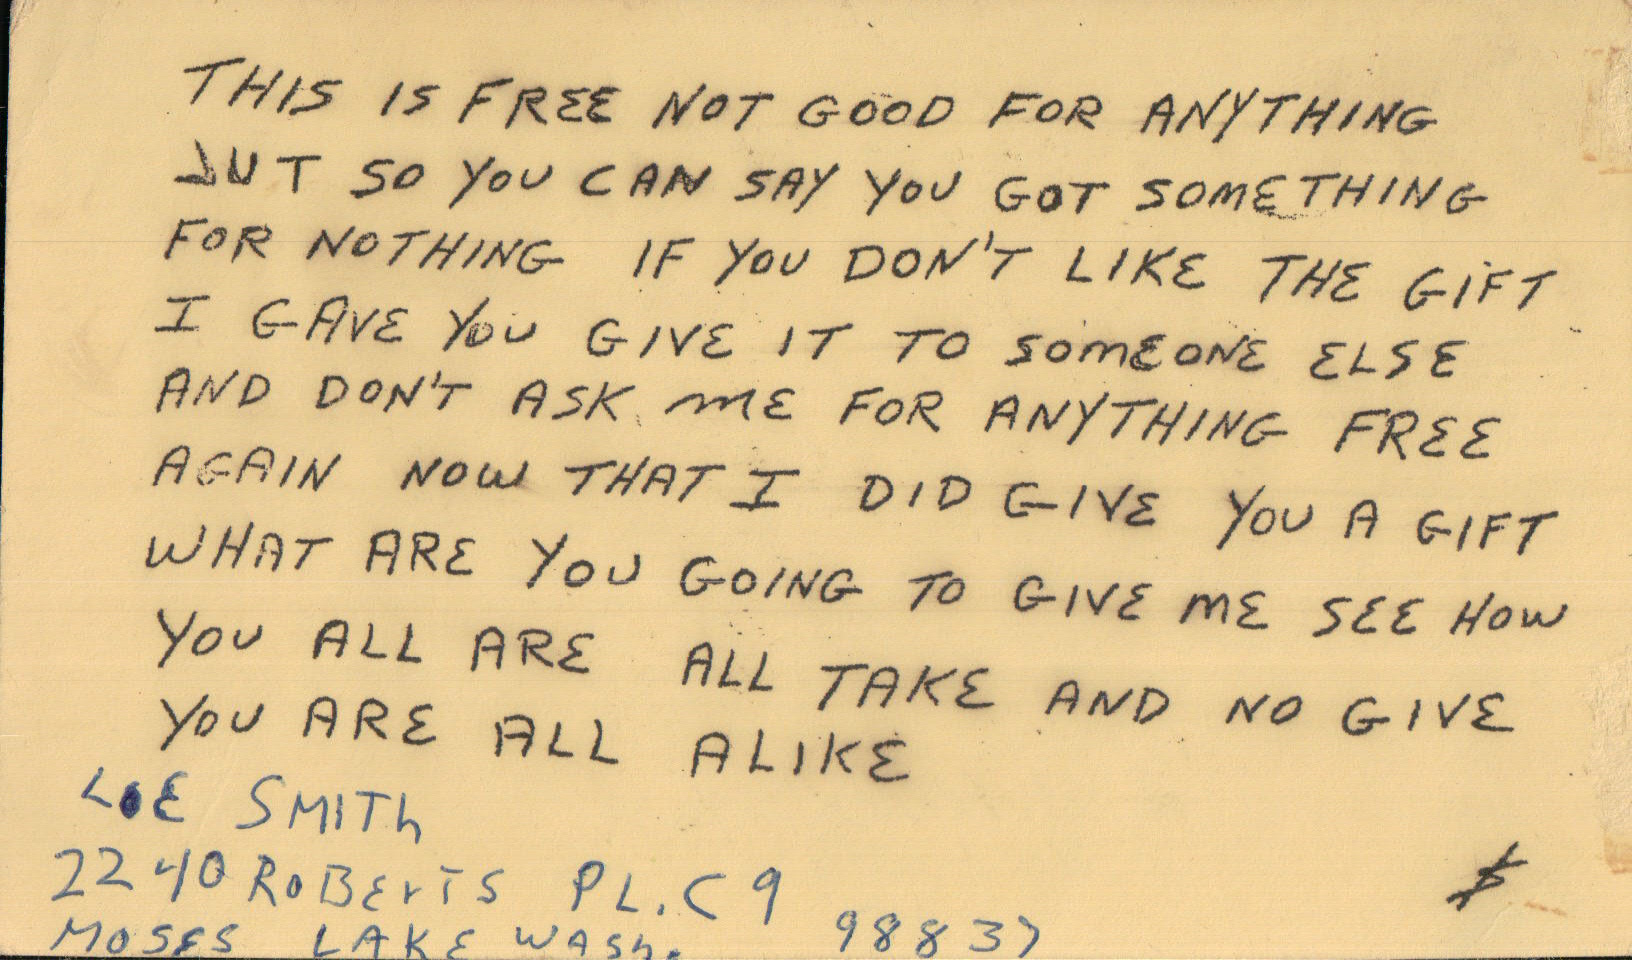 THIS IS FREE NOT GOOD FOR ANYTHING
JUT SO YOU CAN SAY YOU GOT SOMETHING
FOR NOTHING IF YOU DON'T LIKE THE GIFT
I GAVE YOU GIVE IT TO SOMEONE ELSE
AND DON'T ASK ME FOR ANYTHING FREE
AGAIN NOW THAT I DID GIVE YOU A GIFT
WHAT ARE YOU GOING TO GIVE ME SEE HOW
YOU ALL ARE ALL TAKE AND NO GIVE
YOU ARE ALL ALIKE
LOE SMITh
2240 RoBErTS PL. C9
MOSES LAKE WASh. 98837